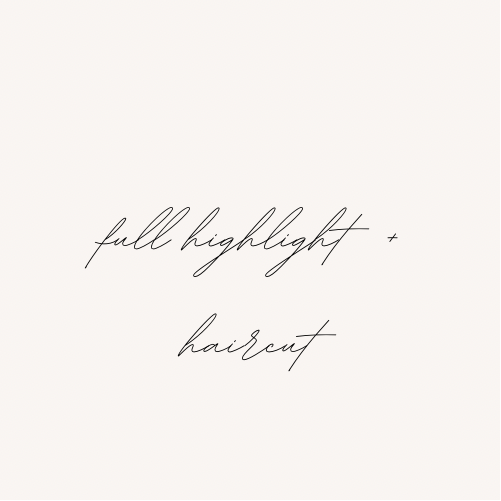 full highlight +
haircut